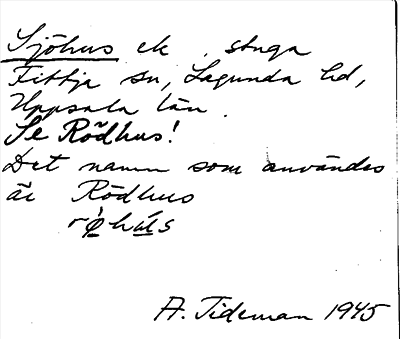 Sjöhus ek. stuga
Fittja sn, Lagunda hd,
Uppsala län.
Se Rödhus!
Det namn som användes
är Rödhus
A. Tideman 1945